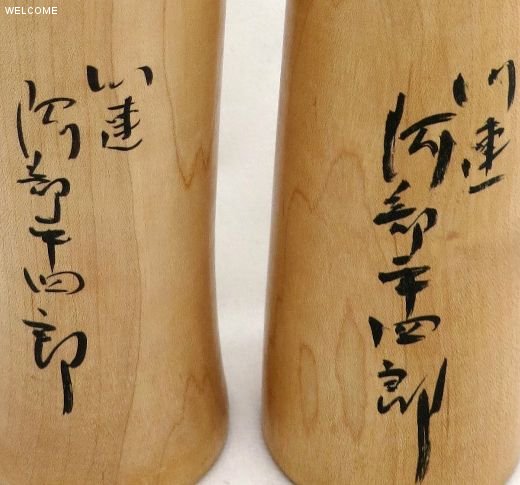 WELCOME
川連
阿部平四郎
川連
阿部平四郎